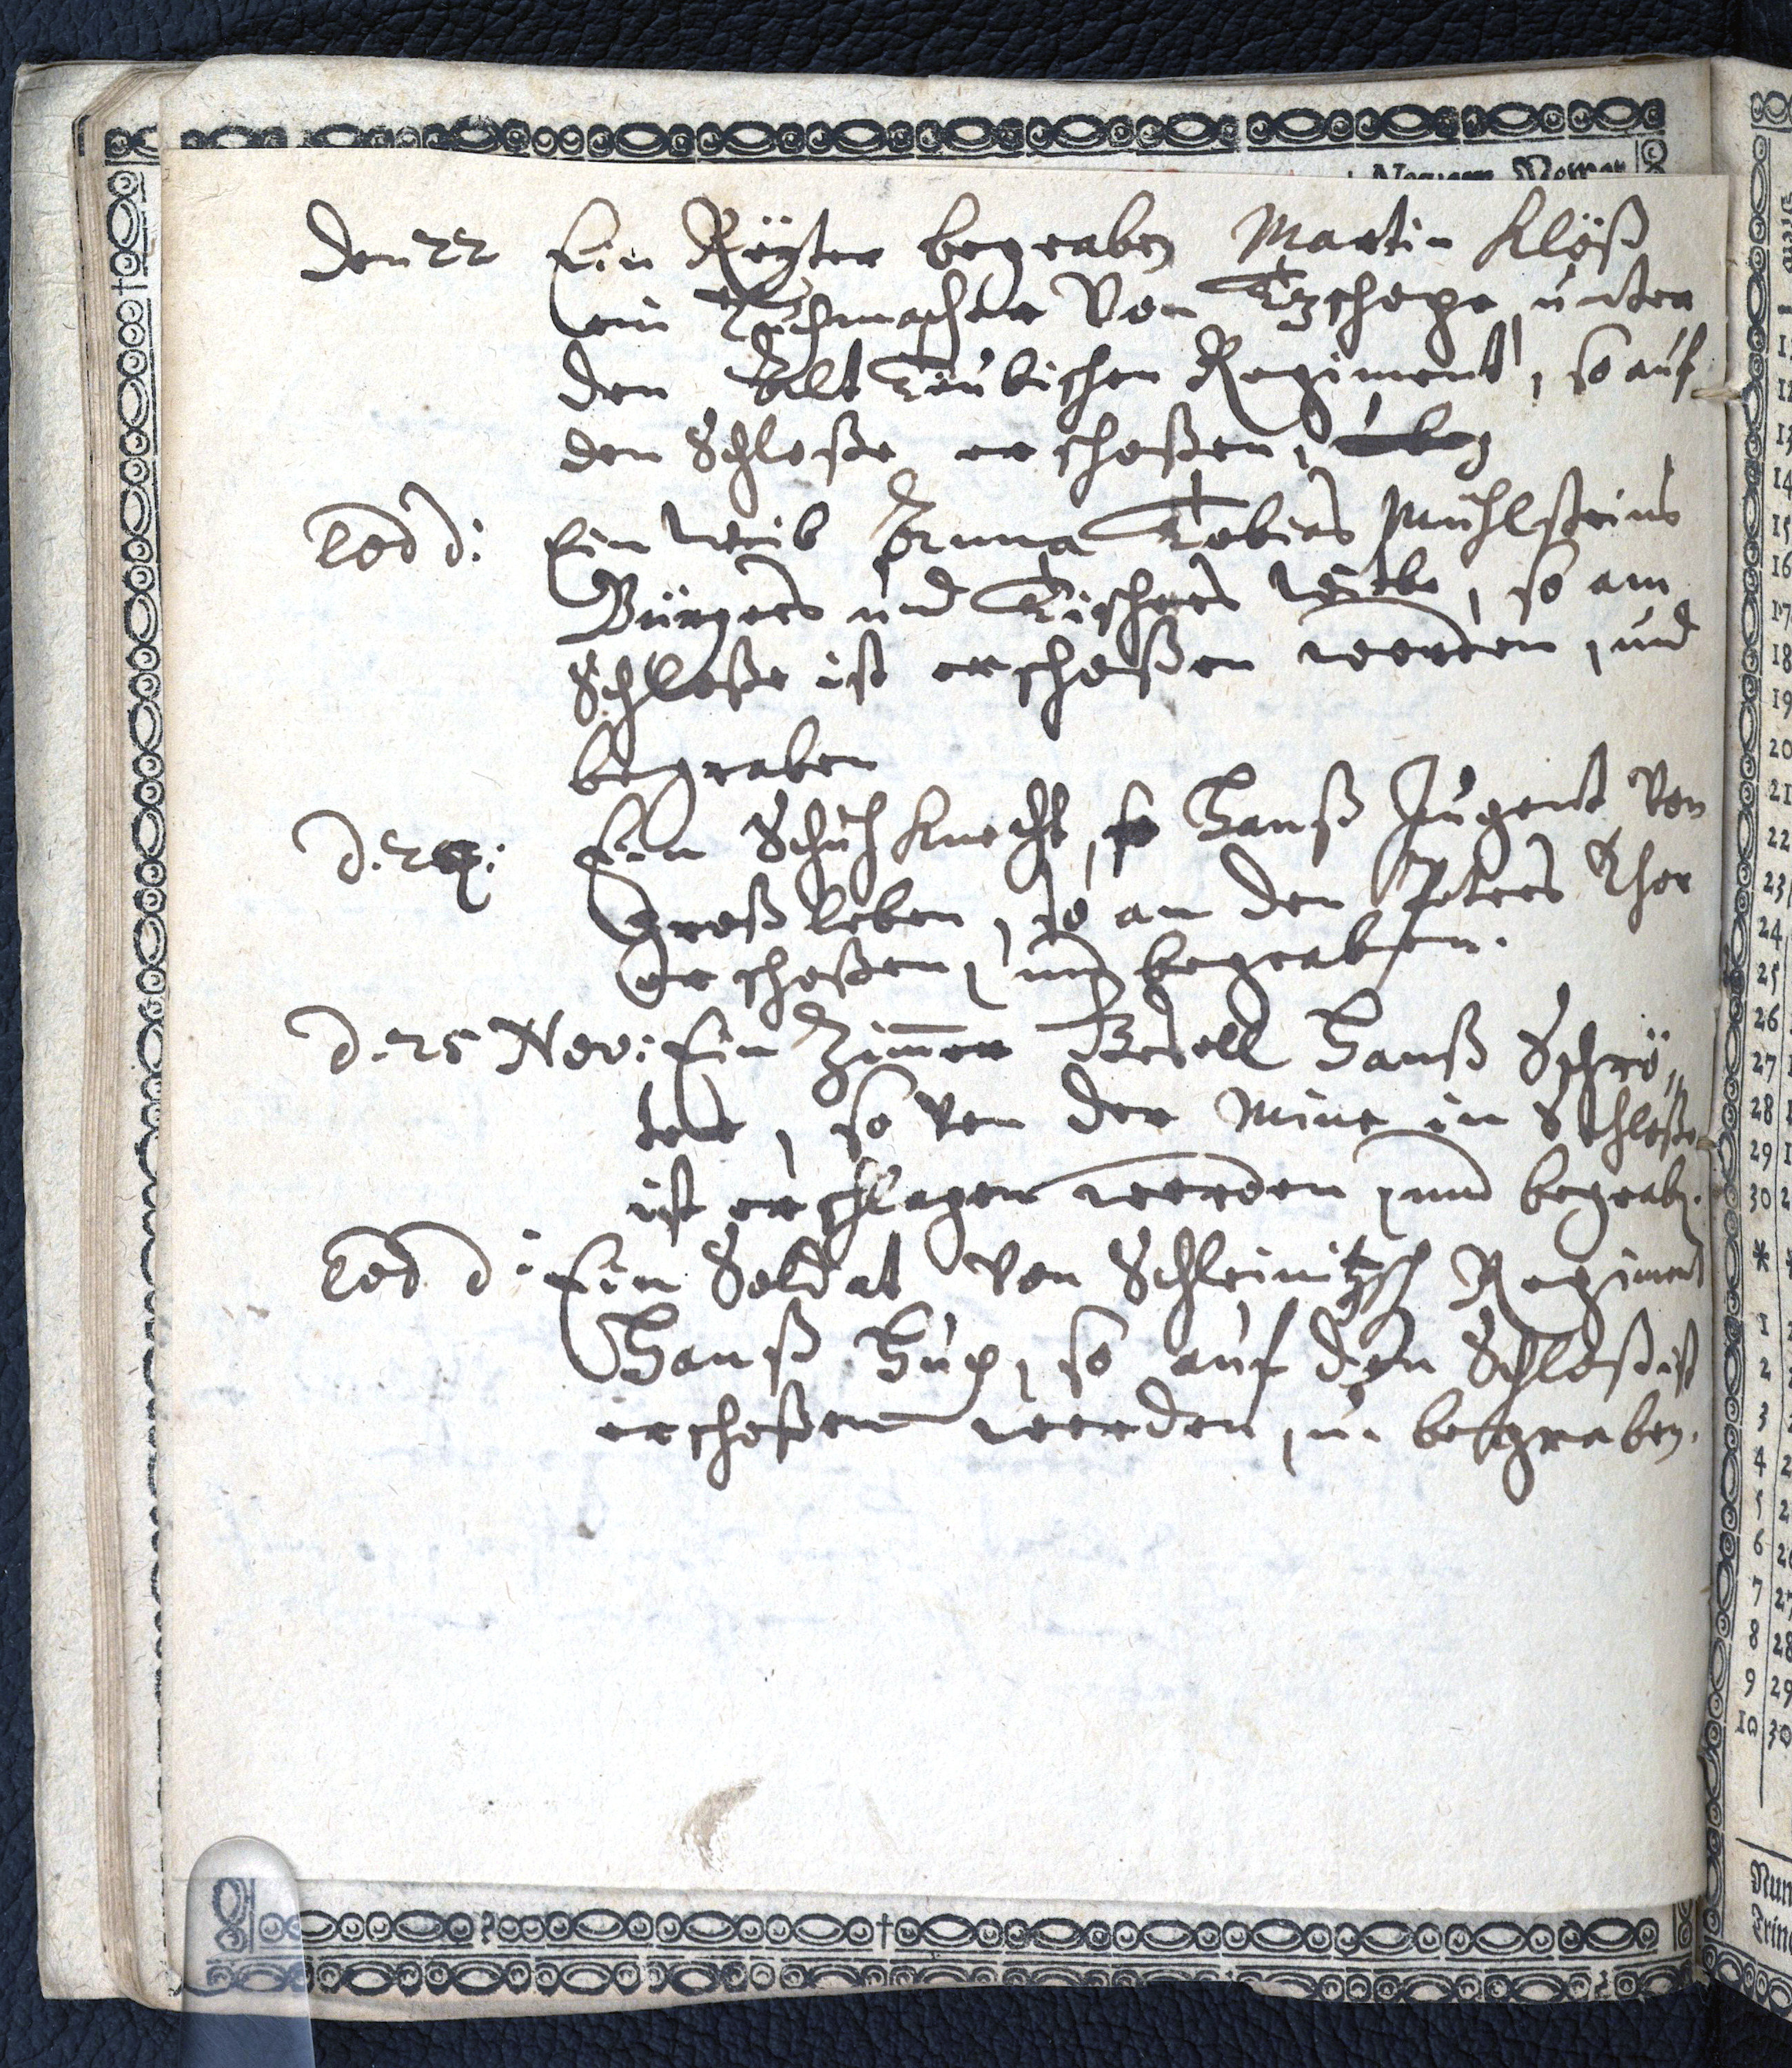 den 22 Ein Reÿter begraben Martin Klöß
ein Tuchmacher Von Tzschopa unter
den Alt Taubischen Regiment, so auf
den Schloße erschoßen,
eod d: Ein weib Anna Tobias Mühlsteins
Bürgers und Tischers weibe, so am
Schloße ist erschoßen worden, und
begraben
d. 24: Ein Schuhknecht, Hanß Jugent Von
Großleben, so an den Peters Thor
erschoßen, und begraben.
d. 25 Nov: Ein Zim̄er Gesell Hanß Schrö„
ter, so von der Mine in Schloße
ist erschlagen worden, und begrab.
eod d: Ein Soldat Von Schleinitzsch Regiment
Hanß, so auf den Schloß ist
erschoßen worden, u. begraben.
1
2
13
14
15
16
17
18
19
20
21
22
23
24
25
26
27
28
29
30
*
1
2
3
4
5
6
7
8
9
10